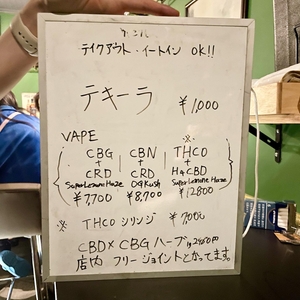 テイクアウト・イートイン OK!!
テキーラ ¥1,000
VAPE
CBG + CRD Super Lemon Haze ¥7700
CBN + CRD OG Kush ¥8,700
※ THCO + H4CBD Super Lemon Haze ¥12800
※ THCO シリンジ ¥7,000
CBD×CBG ハーブ
店内 フリージョイントとかってます。